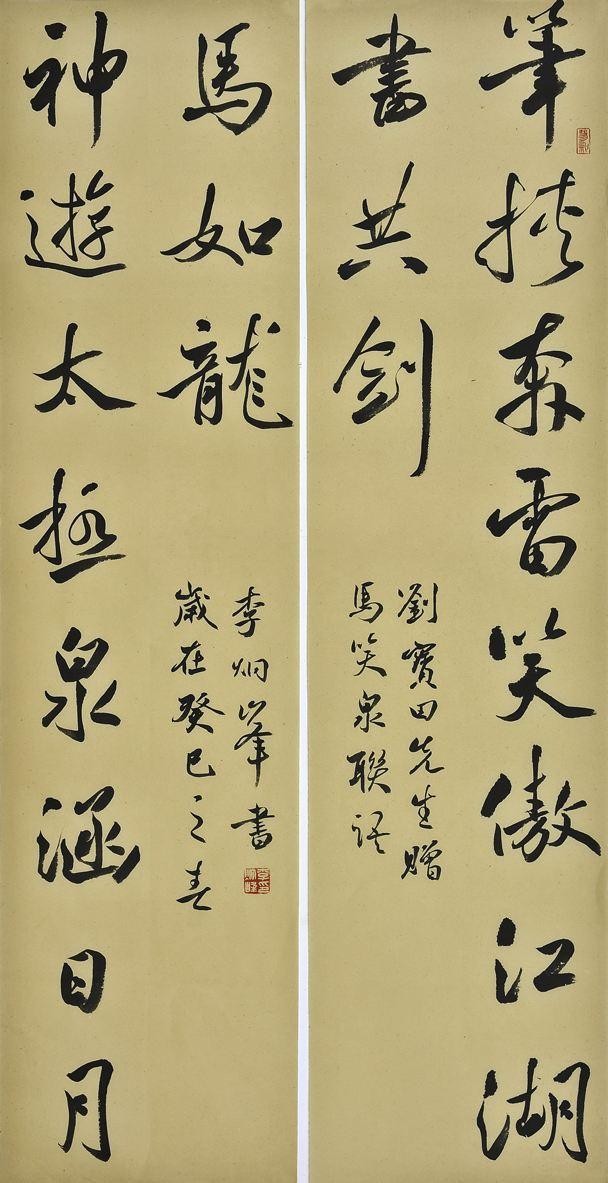 筆挾奔雷笑傲江湖
書共劍
劉寶田先生贈
馬笑泉聯語
神遊太極泉涵日月
馬如龍
歲在癸巳之春
李炯峯書